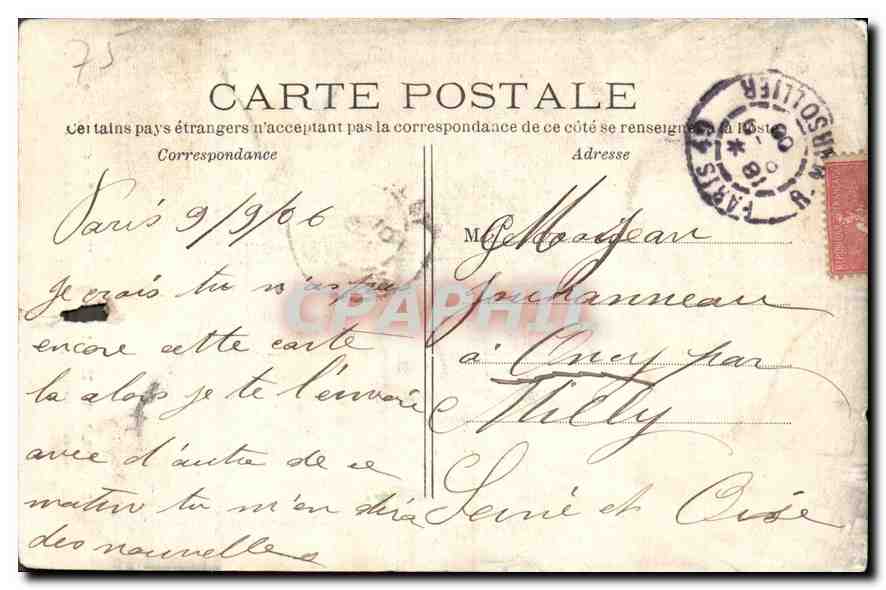 75
CARTE POSTALE
Certains pays étrangers n'acceptant pas la correspondance de ce côté se renseigner à la Poste
Correspondance
Adresse
Paris 9/9/06
je crois tu n'as pas
encore cette carte
la alors je te l'envoie
avec d'autre de ce
matin tu m'en dira
des nouvelles
M Jean
Jouhanneau
à Oncy par
Milly
Seine et Oise
PARIS 64
R. MARSOLLIER
18
REPUBLIQUE FRANÇAISE
CPAPHIL